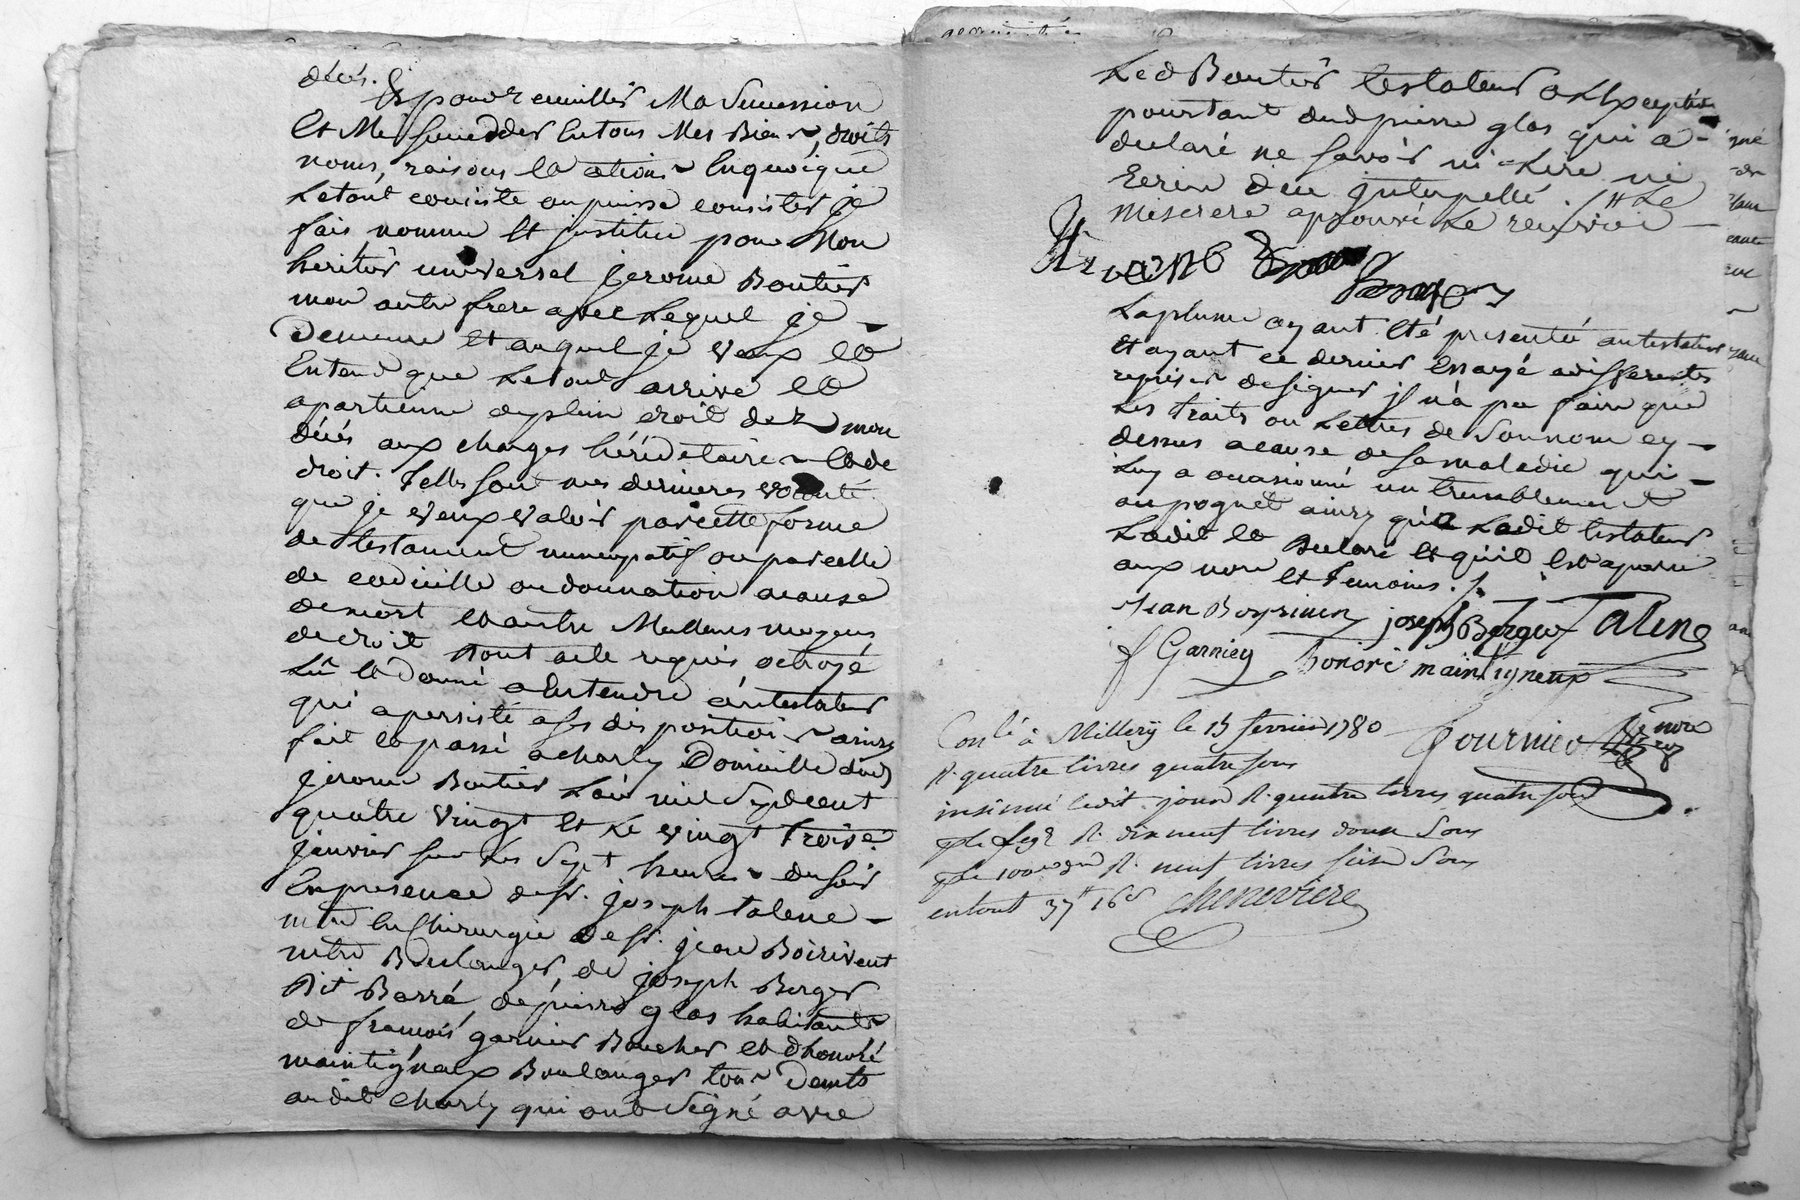 décés.
Et pour recuillir Ma Succession
Et Me succedder En tous Mes Biens, droits
noms, raisons Et actions En quoique
Le tout consiste ou puisse consister je
fais nomme Et jnstitue pour Mon
heritier universel jerome Boutier
mon autre frere avec Lequel je
Demeure Et auquel je veux Et
Entend que Le tout arrive Et
apartienne de plein droit dez mon
décés aux charges héréditaires Et de
droit. Telles sont mes dernieres volonté
que je veux valoir par cette forme
de testament nuncupatif ou par celle
de codicille ou donnation a cause
de mort Et autre Meilleurs moyens
de droit Dont acte requis octroyé
Lû Et donné a Entendre au testateur
qui a persisté a ses disposition ainsy
fait Et passé a charly Domicille dud
jerome Boutier L'an mil Sept cent
quatre vingt Et Le vingt Trois
janvier sur Les Sept heures du soir
En presence de sr. joseph talene
mtre En Chirurgie de sr. jean Boirivent
mtre Boulanger, de joseph Berger
Dit Barré de pierre glas habitants
de francois garnier Boucher Et d'honoré
maintigneux Boulanger tous Demts
au dit charly qui ont Signé avec
Led Boutier testateur a L'Exception
pourtant dud pierre glas qui a
declaré ne savoir ni Lire ni
Ecrire de ce jnterpellé. Le
Miserere aprouvé Le renvoi
La plume ayant Eté presentée au testateur
Et ayant ce dernier Essayé a differentes
reprises de signer jl n'a pu faire que
Les traits ou Lettres de Son nom cy
dessus a cause de sa maladie qui
Luy a occasionné un tremblement
au pognet ainsy que Ledit testateur
L'a dit Et Declaré Et qu'il Est aparu
aux nore Et Temoins.
jean Boyriven joseph Berger Talene
f Garnier honoré maintigneux
Conlé à Millery le 15 fevrier 1780 fournier nore
R. quatre livres quatre sous
insinué ledit jour R. quatre livres quatre sous
R. dix neuf livres douze Sous
R. neuf livres seize Sous
en tout 37# 16s cheneviere